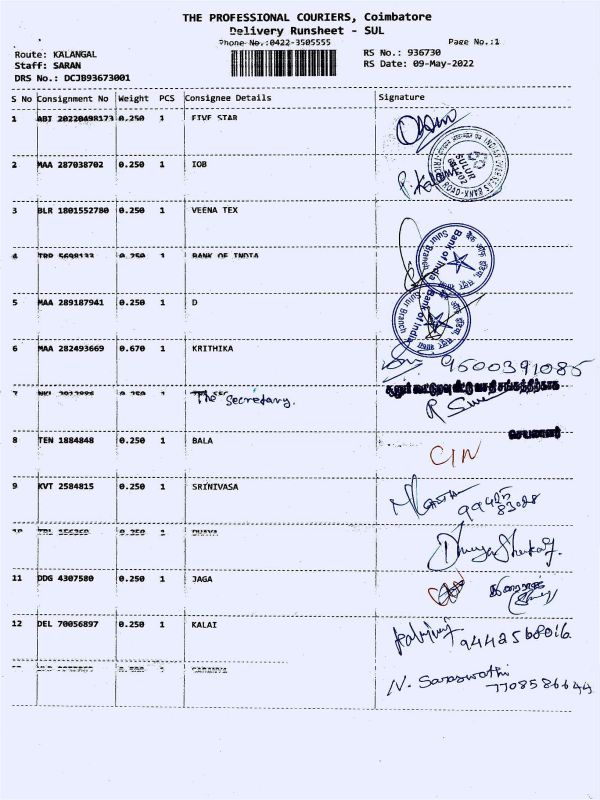 THE PROFESSIONAL COURIERS, Coimbatore
Delivery Runsheet - SUL
Phone No.:0422-3505555
Page No.:1
Route: KALANGAL
Staff: SARAN
DRS No.: DCJB93673001
RS No.: 936730
RS Date: 09-May-2022
S No Consignment No Weight PCS Consignee Details Signature
1 ABT 20220498173 0.250 1 FIVE STAR
2 MAA 287038702 0.250 1 IOB
SULUR
3 BLR 1801552780 0.250 1 VEENA TEX
4 0.250 1 BANK OF INDIA
Bank of India
Sulur Branch
5 MAA 289187941 0.250 1 D
Bank of India
Sulur Branch
6 MAA 282493669 0.670 1 KRITHIKA 9500391085
7 1 The Secretary.
சூலூர் கூட்டுறவு வீட்டு வசதி சங்கத்திற்காக
செயலாளர்
8 TEN 1884848 0.250 1 BALA
9 KVT 2584815 0.250 1 SRINIVASA
10 0.250 1
11 DDG 4307580 0.250 1 JAGA
12 DEL 70056897 0.250 1 KALAI 9442568016
N. Saraswathi
7708586644